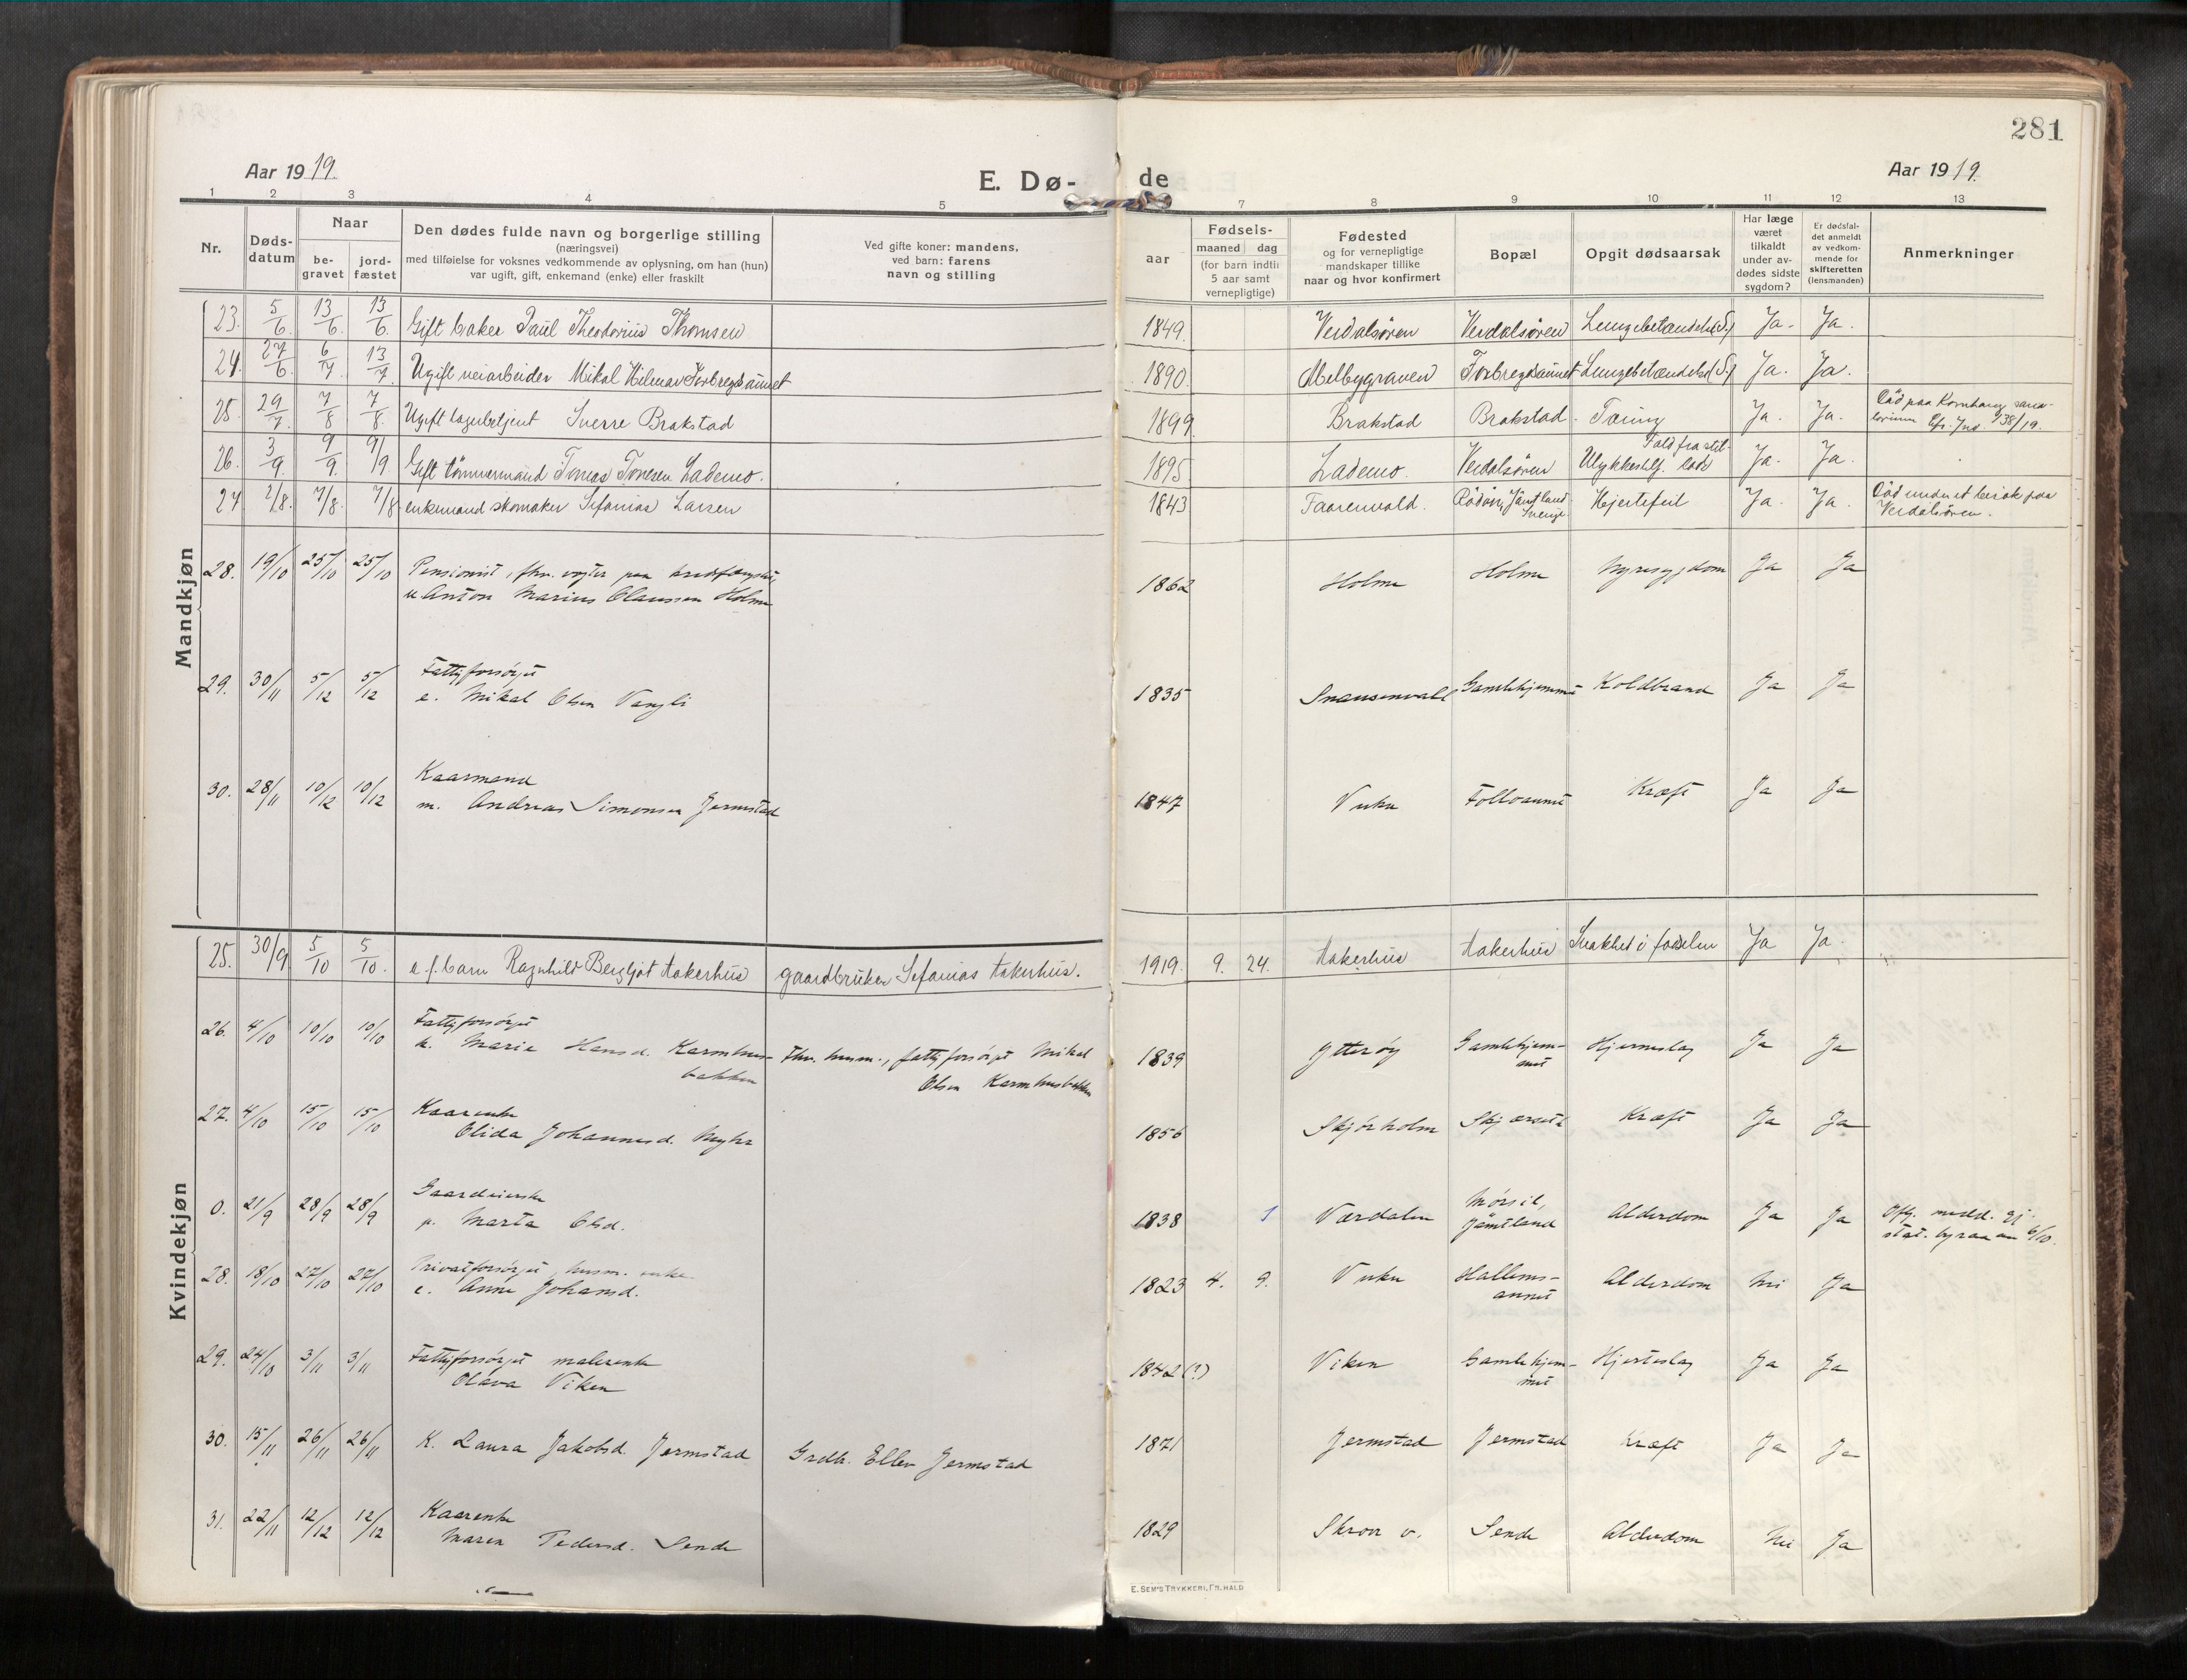 281
Aar 19 19.
E. Dø-
de
Aar 19 19.
1 2 3 4 5 7 8 9 10 11 12 13
Nr.
Døds-
datum
Naar
be-
gravet
jord-
fæstet
Den dødes fulde navn og borgerlige stilling
(næringsvei)
med tilføielse for voksnes vedkommende av oplysning, om han (hun)
var ugift, gift, enkemand (enke) eller fraskilt
Ved gifte koner: mandens,
ved barn: farens
navn og stilling
Fødsels-
aar
maaned dag
(for barn indtil
5 aar samt
vernepligtige)
Fødested
og for vernepligtige
mandskaper tillike
naar og hvor konfirmert
Bopæl
Opgit dødsaarsak
Har læge
været
tilkaldt
under av-
dødes sidste
sygdom?
Er dødsfal-
det anmeldt
av vedkom-
mende for
skifteretten
(lensmanden)
Anmerkninger
Mandkjøn
23. 5/6. 13/6. 13/6. Gift baker Paul Theodorius Thomsen 1849. Verdalsøren Verdalsøren Lungebetændelse (S.) Ja. Ja.
24. 27/6. 6/7 13/7. Ugift veiarbeider Mikal Hilmar Forbregdsaunet 1890. Melbygraven Forbregdsaunet Lungebetændelse (S.) Ja. Ja.
25. 29/7. 7/8 7/8. Ugift lagerbetjent Sverre Brakstad 1899. Brakstad Brakstad. Tæring Ja. Ja. Død paa Kornhaug sana-
torium Cfr. Jns. 138/19.
26. 3/9. 9/9. 9/9 Gift tømmermand Tomas Tomesen Lademo. 1895 Lademo. Verdalsøren Ulykkestilf. Fald fra stil-
lads Ja. Ja.
27 2/8. 7/8. 7/8 enkemand skomaker Sefanias Larsen 1843 Faarenvald. Rödön, Jämtland
Sverige Hjertefeil Ja. Ja. Død under et besøk paa
Verdalsøren.
28. 19/10 25/10 25/10 Pensionist, fhv. vogter paa
u. Anton Marius Claussen Holme 1862 Holme Holme Nyresygdom Ja Ja
29. 30/11 5/12 5/12 Fattigforsørget
e. Mikal Olsen Vangli 1835 Snausenvald Gamlehjemmet Koldbrand Ja Ja
30. 28/11 10/12 10/12 Kaarmand
m. Andreas Simonsen Jermstad 1847 Vuku Folloaunet Kræft Ja Ja
Kvindekjøn
25. 30/9 5/10 5/10. e. f. barn Ragnhild Bergljot Aakerhus gaardbruker Sefanias Aakerhus. 1919. 9. 24. Aakerhus Aakerhus Svakhet i fødselen Ja Ja.
26. 4/10 10/10 10/10 Fattigforsørget
k. Marie Hansd. Karmhus-
bakken Fhv. husm., fattigforsørget Mikal
Olsen Karmhusbakken 1839 Ytterøy Gamlehjem-
met Hjerneslag Ja Ja
27. 4/10 15/10 15/10 Kaarenke
Olida Johannesd. Myhr 1856 Skjørholm Skjørset Kræft Ja Ja
0. 21/9 28/9 28/9 Gaardeierske
p. Marta Olsd. 1838 1 Værdalen Mörsil,
Jämtland Alderdom Ja Ja Opg. medd. gj.
stat. byraa 6/10.
28. 18/10 27/10 27/10 Privatforsørget, husm. enke
e. Anne Johansd. 1823 4. 9. Vuku Hallems-
aunet Alderdom Nei Ja
29. 24/10 3/11 3/11 Fattigforsørget malerenke
Olava Viken 1842 (?) Viken Gamlehjem-
met Hjerteslag Ja Ja
30. 15/11 26/11 26/11 K. Laura Jakobsd. Jermstad Grdbr. Ellev Jermstad 1871 Jermstad Jermstad Kræft Ja Ja
31. 22/11 12/12 12/12 Kaarenke
Maren Pedersd. Sende 1829 Skrov v. Sende Alderdom Nei Ja
E. SEM'S TRYKKERI, FR.HALD